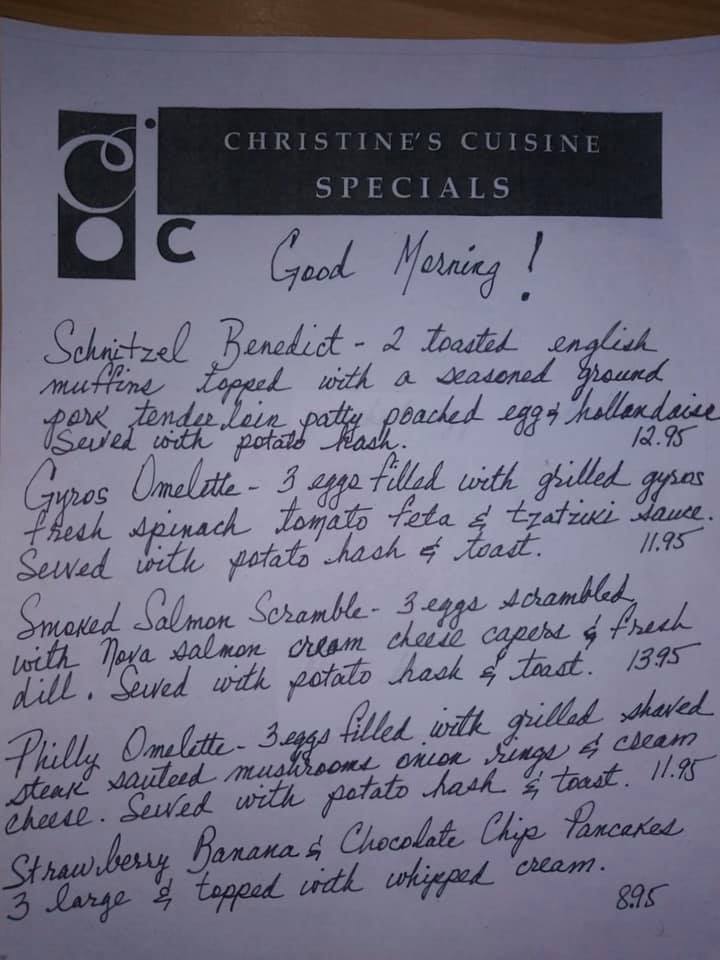 CHRISTINE'S CUISINE
SPECIALS
C
Good Morning!
Schnitzel Benedict - 2 toasted english
muffins topped with a seasoned ground
pork tenderloin patty poached egg & hollandaise
Served with potato hash. 12.95
Gyros Omelette - 3 eggs filled with grilled gyros
fresh spinach tomato feta & tzatziki sauce.
Served with potato hash & toast. 11.95
Smoked Salmon Scramble - 3 eggs scrambled
with Nova salmon cream cheese capers & fresh
dill. Served with potato hash & toast. 13.95
Philly Omelette - 3 eggs filled with grilled shaved
steak sauteed mushrooms onion rings & cream
cheese. Served with potato hash & toast. 11.95
Strawberry Banana & Chocolate Chip Pancakes
3 large & topped with whipped cream.
8.95